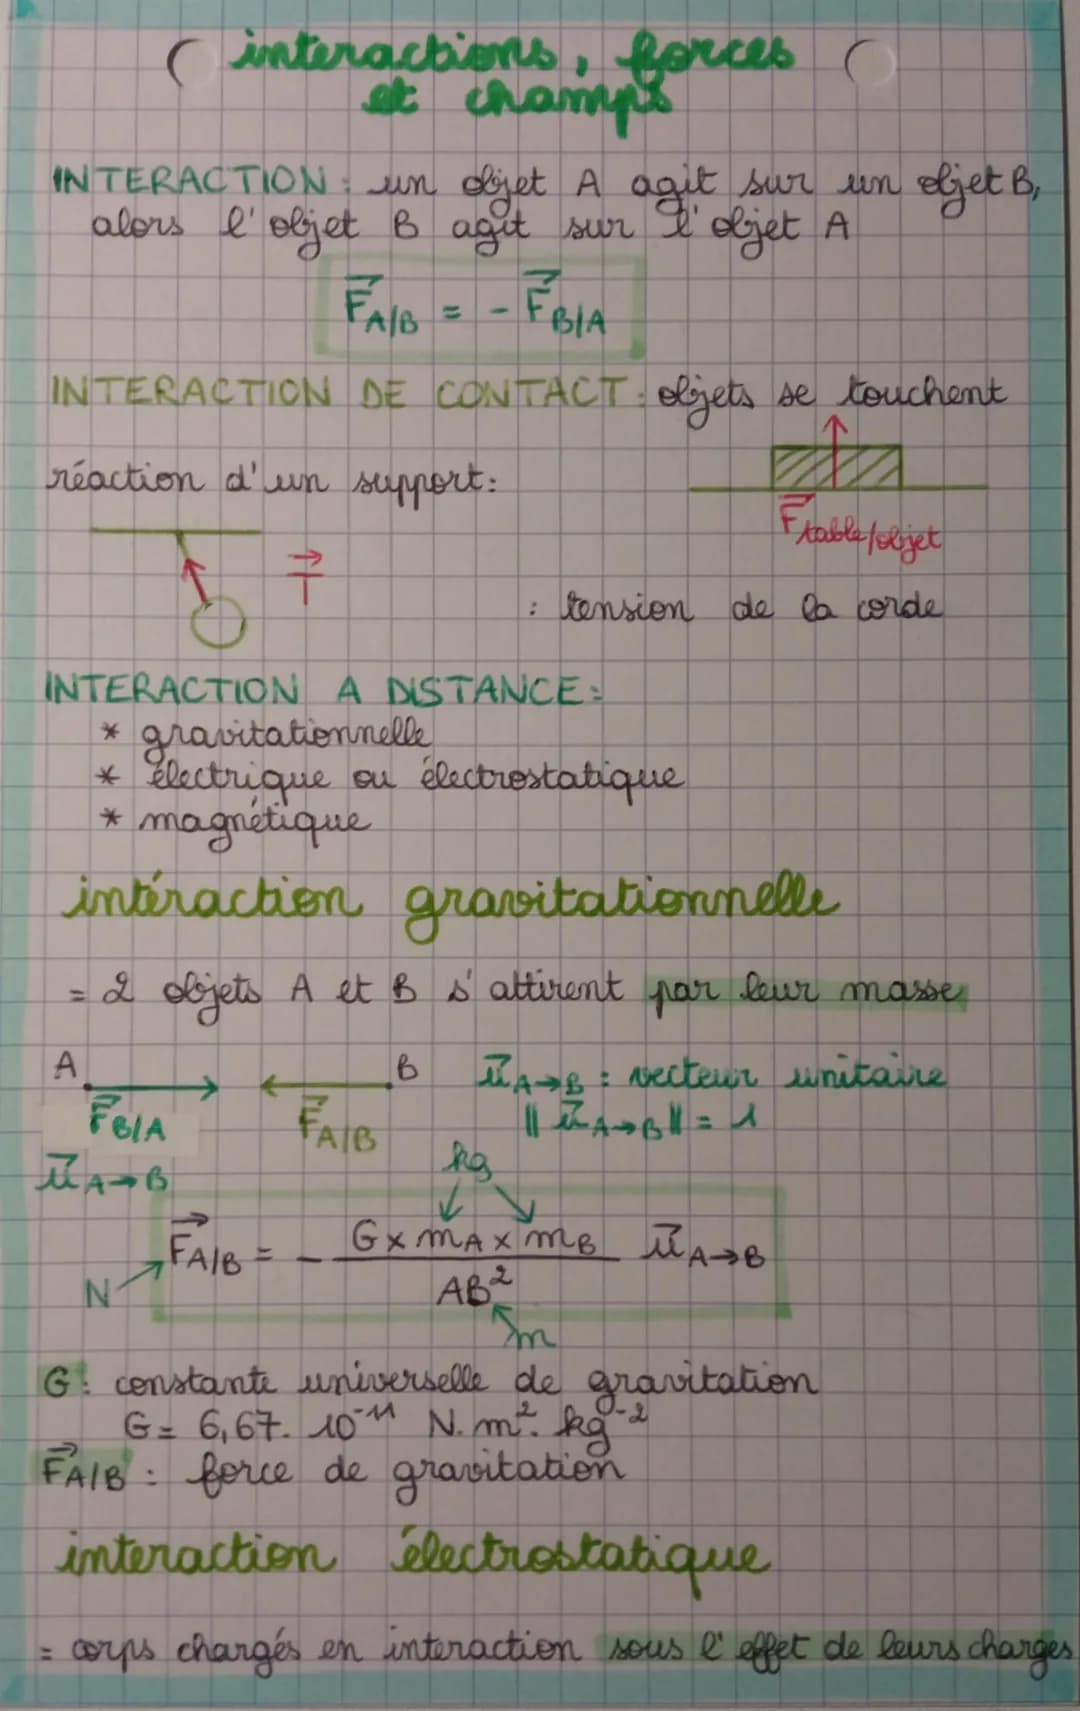 interactions, forces
et champs
INTERACTION : un objet A agit sur un objet B,
alors l'objet B agit sur l'objet A
F⃗A/B = - F⃗B/A
INTERACTION DE CONTACT : objets se touchent
réaction d'un support :
F⃗table/objet
T⃗
: tension de la corde
INTERACTION A DISTANCE :
* gravitationnelle
* électrique ou électrostatique
* magnétique
intéraction gravitationnelle
= 2 objets A et B s'attirent par leur masse
A B u⃗A→B : vecteur unitaire
F⃗B/A F⃗A/B || u⃗A→B || = 1
u⃗A→B
kg
F⃗A/B = - G x mA x mB / AB² u⃗A→B
N
m
G : constante universelle de gravitation
G = 6,67. 10⁻¹¹ N. m². kg⁻²
F⃗A/B : force de gravitation
interaction électrostatique
= corps chargés en interaction sous l'effet de leurs charges